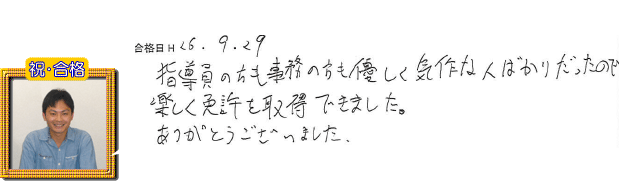 合格日 H 26. 9. 29
祝・合格
指導員の方も事務の方も優しく気作な人ばかりだったので
楽しく免許を取得できました。
ありがとうございました.